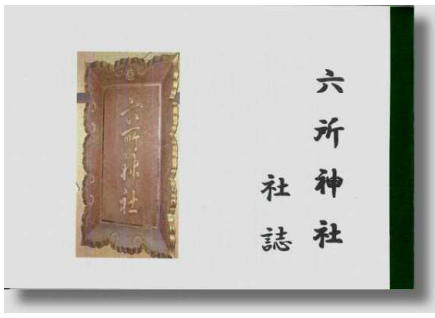 六所神社
社誌
六所神社